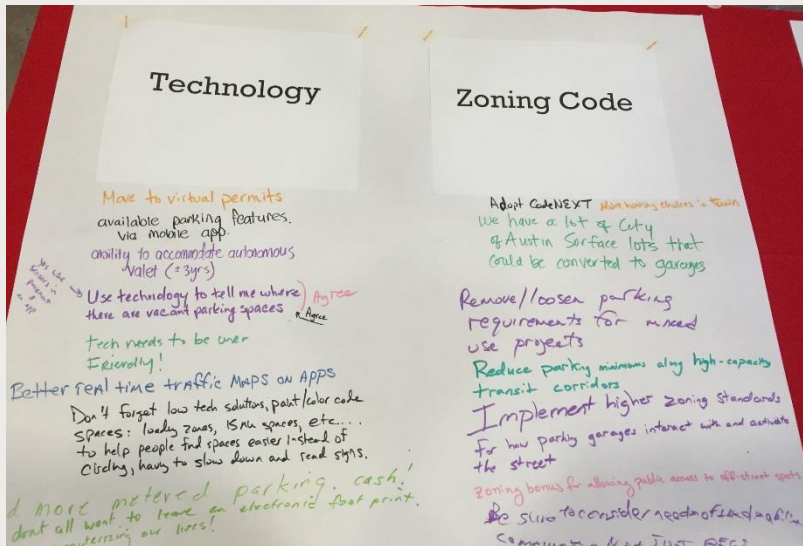 Technology
Move to virtual permits
available parking features.
via mobile app.
ability to accomodate autonomous
valet (±3yrs)
yes use
sensors in
pavement
&
an app
Use technology to tell me where
there are vacant parking spaces
Agree
Agree
tech needs to be user
Friendly!
Better real time traffic MAPS ON APPS
Don't forget low tech solutions, paint/color code
spaces: loading zones, 15 min spaces, etc...
to help people find spaces easier instead of
circling, having to slow down and read signs.
more metered parking. cash!
dont all want to leave an electronic foot print.
our lives!
Zoning Code
Adopt CodeNEXT More housing choices in town
We have a lot of City
of Austin Surface lots that
could be converted to garages
Remove/loosen parking
requirements for mixed
use projects
Reduce parking minimums along high-capacity
transit corridors
Implement higher zoning standards
for how parking garages interact with and activate
the street
Zoning bonus for allowing public access to off-street spots
Be sure to consider needs of
Not JUST